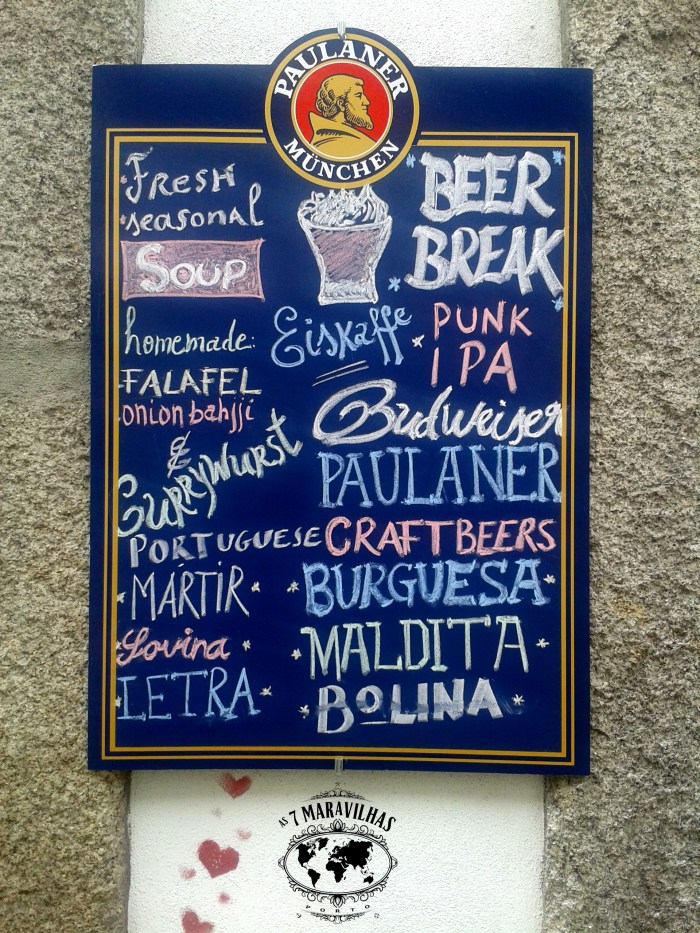 PAULANER
MÜNCHEN
FRESH
seasonal
SOUP
BEER
BREAK
homemade:
FALAFEL
onion bahjji
&
CURRYWURST
Eiskaffe
PUNK
IPA
Budweiser
PAULANER
PORTUGUESE CRAFT BEERS
MÁRTIR
Sovina
LETRA
BURGUESA
MALDITA
BOLINA
AS 7 MARAVILHAS
PORTO